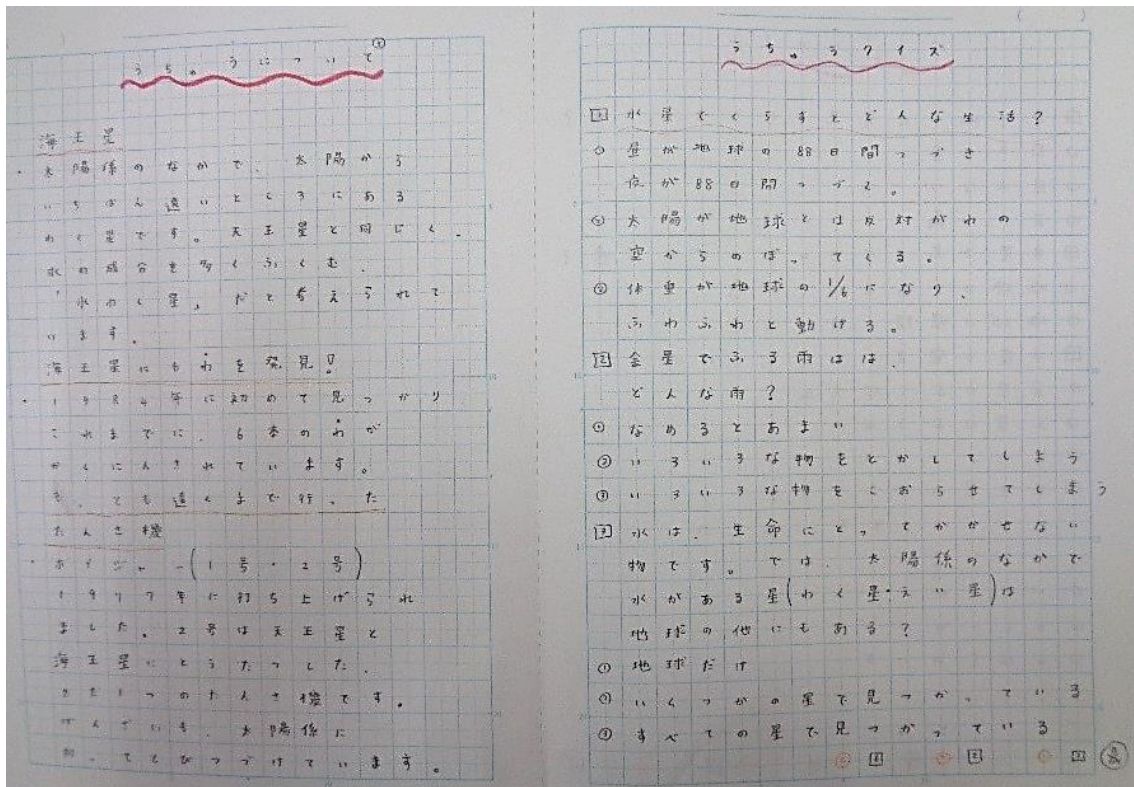 うちゅうについて
海王星
・太陽係のなかで、太陽から
いちばん遠いところにある
わく星です。天王星と同じく、
氷の成分を多くふくむ、
「氷わく星」だと考えられて
います。
海王星にもわを発見!
・1984年に初めて見つかり
これまでに、6本のわが
かくにんされています。
もっとも遠くまで行った
たんさ機
・ボイジャー(1号・2号)
1977年に打ち上げられ
ました。2号は天王星と
海王星にとうたつした、
ただ1つのたんさ機です。
げんざいも、太陽係に
向ってとびつづけています。
うちゅうクイズ
1 水星でくらすとどんな生活?
① 昼が地球の88日間つづき
夜が88日間つづく。
② 太陽が地球とは反対がわの
空からのぼってくる。
③ 体重が地球の1/6になり、
ふわふわと動ける。
2 金星でふる雨はは、
どんな雨?
① なめるとあまい
② いろいろな物をとかしてしまう
③ いろいろな物をこおらせてしまう
3 水は、生命にとってかかせない
物です。では、太陽係のなかで
水がある星(わく星・えい星)は
地球の他にもある?
① 地球だけ
② いくつかの星で見つかっている
③ すべての星で見つかっている